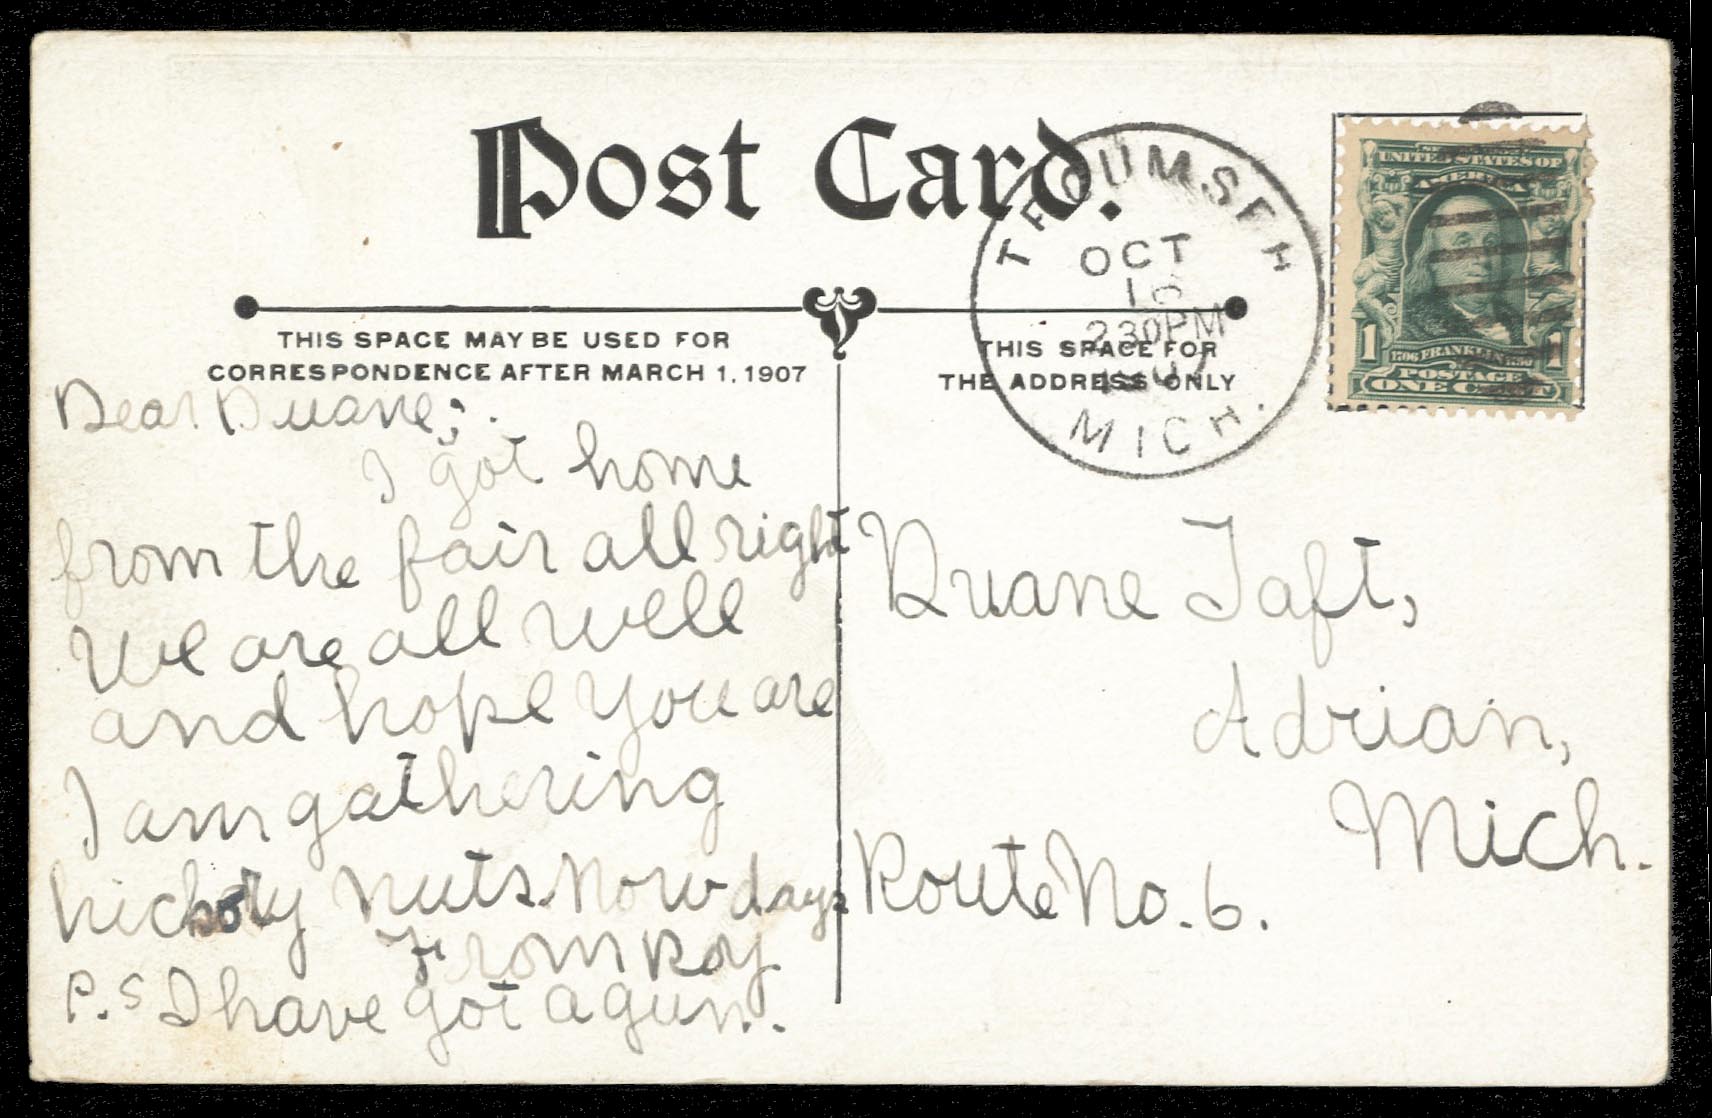 Post Card.
TECUMSEH
OCT
16
230PM
MICH.
SERIES 1902
UNITED STATES OF
AMERICA
1706 FRANKLIN 1790
1 1
POSTAGE
ONE CENT
THIS SPACE MAY BE USED FOR
CORRESPONDENCE AFTER MARCH 1, 1907
THIS SPACE FOR
THE ADDRESS ONLY
Dear Duane;.
I got home
from the fair all right
We are all well
and hope you are
I am gathering
hickory nuts now days
From Roy
P.S I have got a gun.
Duane Taft,
Adrian,
Mich.
Route No. 6.